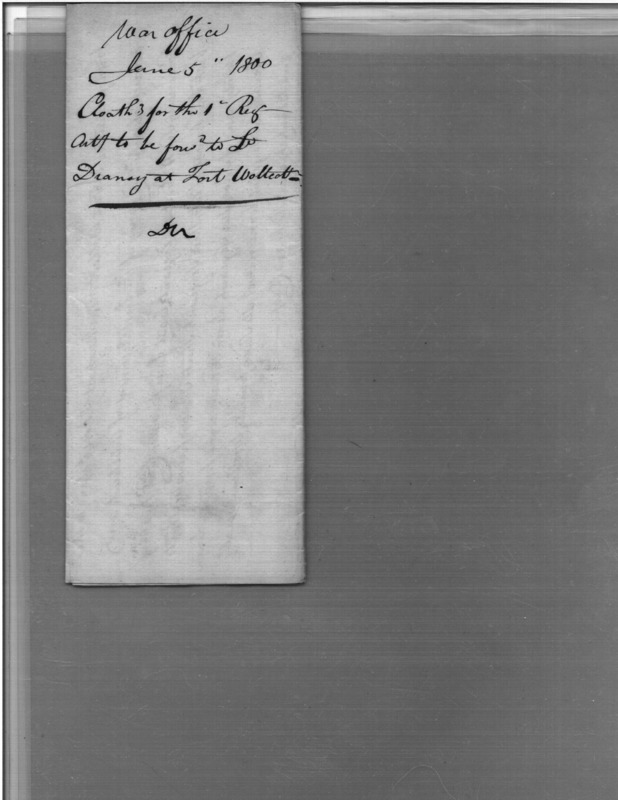 War office
June 5" 1800
Cloathg for the 1t Reg
Arty to be forwd to Lt
Dransy at Fort Wollcott